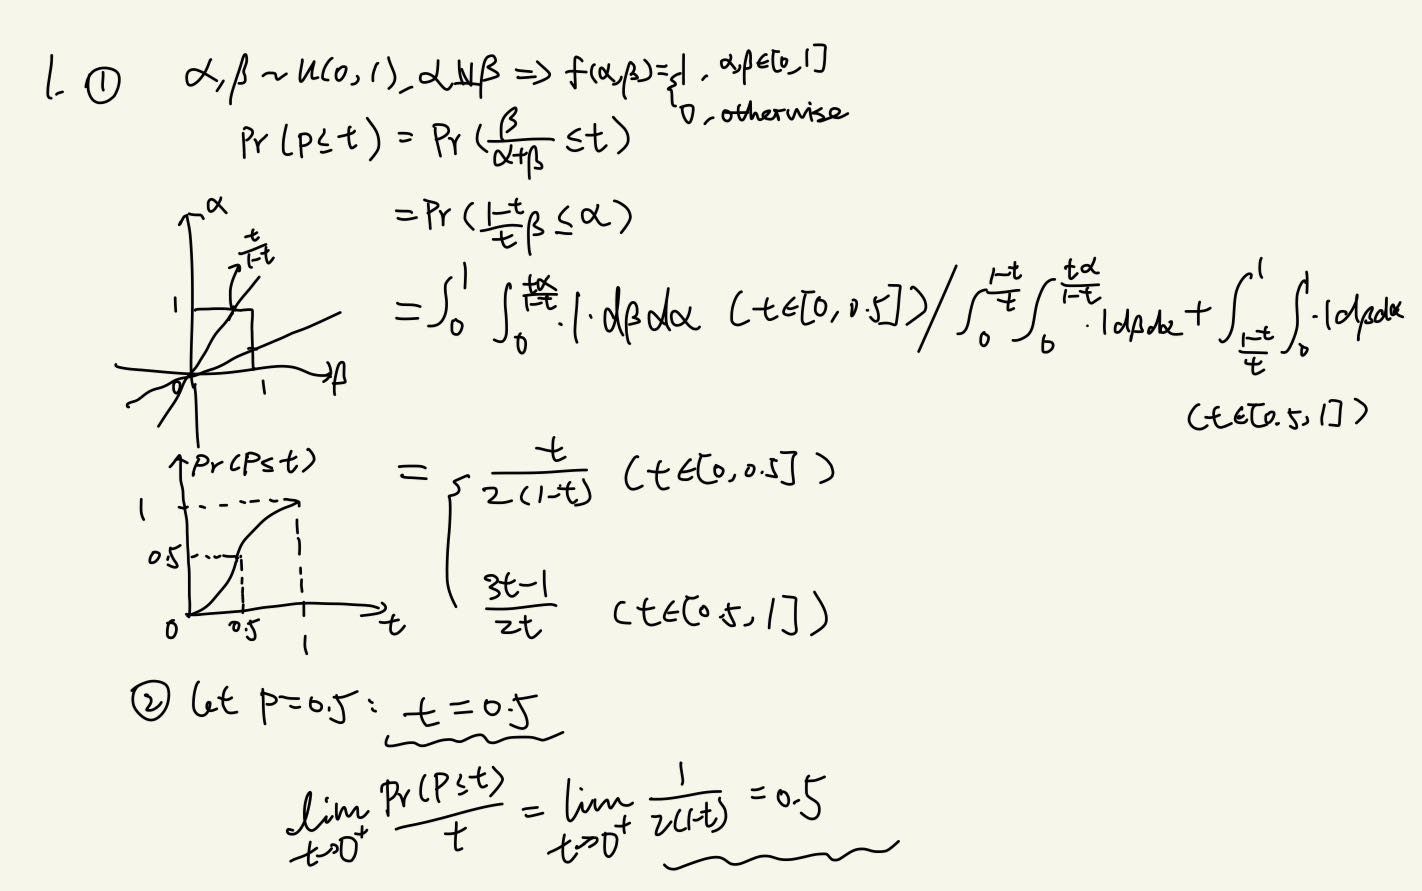 1. ① α,β ~ U(0,1), α⫫β => f(α,β)={1, α,β∈[0,1]
0, otherwise
Pr(P≤t) = Pr(β/(α+β) ≤t)
=Pr((1-t)/t β ≤ α)
α
t/(1-t)
1
0
1
β
= ∫_0^1 ∫_0^{tα/(1-t)} ·1·dβdα (t∈[0,0.5]) / ∫_0^{(1-t)/t} ∫_0^{tα/(1-t)} ·1dβdα + ∫_{(1-t)/t}^1 ∫_0^1 ·1dβdα
(t∈[0.5,1])
Pr(P≤t)
1
0.5
0
0.5
1
t
= { t/(2(1-t)) (t∈[0,0.5])
(3t-1)/(2t) (t∈[0.5,1])
② let P=0.5: t=0.5
lim_{t→0⁺} Pr(P≤t)/t = lim_{t→0⁺} 1/(2(1-t)) = 0.5